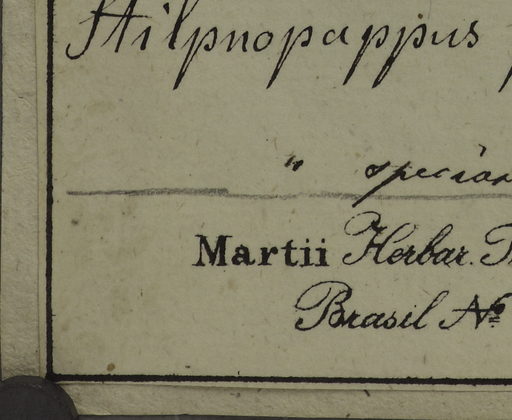 Stilpnopappus
"
Martii Herbar.
Brasil No